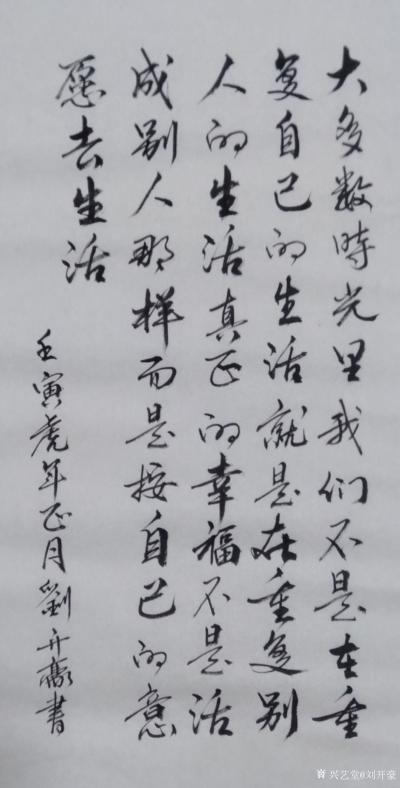 大多数時光里我们不是在重
复自己的生活就是在重复别
人的生活真正的幸福不是活
成别人那样而是按自己的意
愿去生活
壬寅虎年正月劉开豪書
兴艺堂@刘开豪